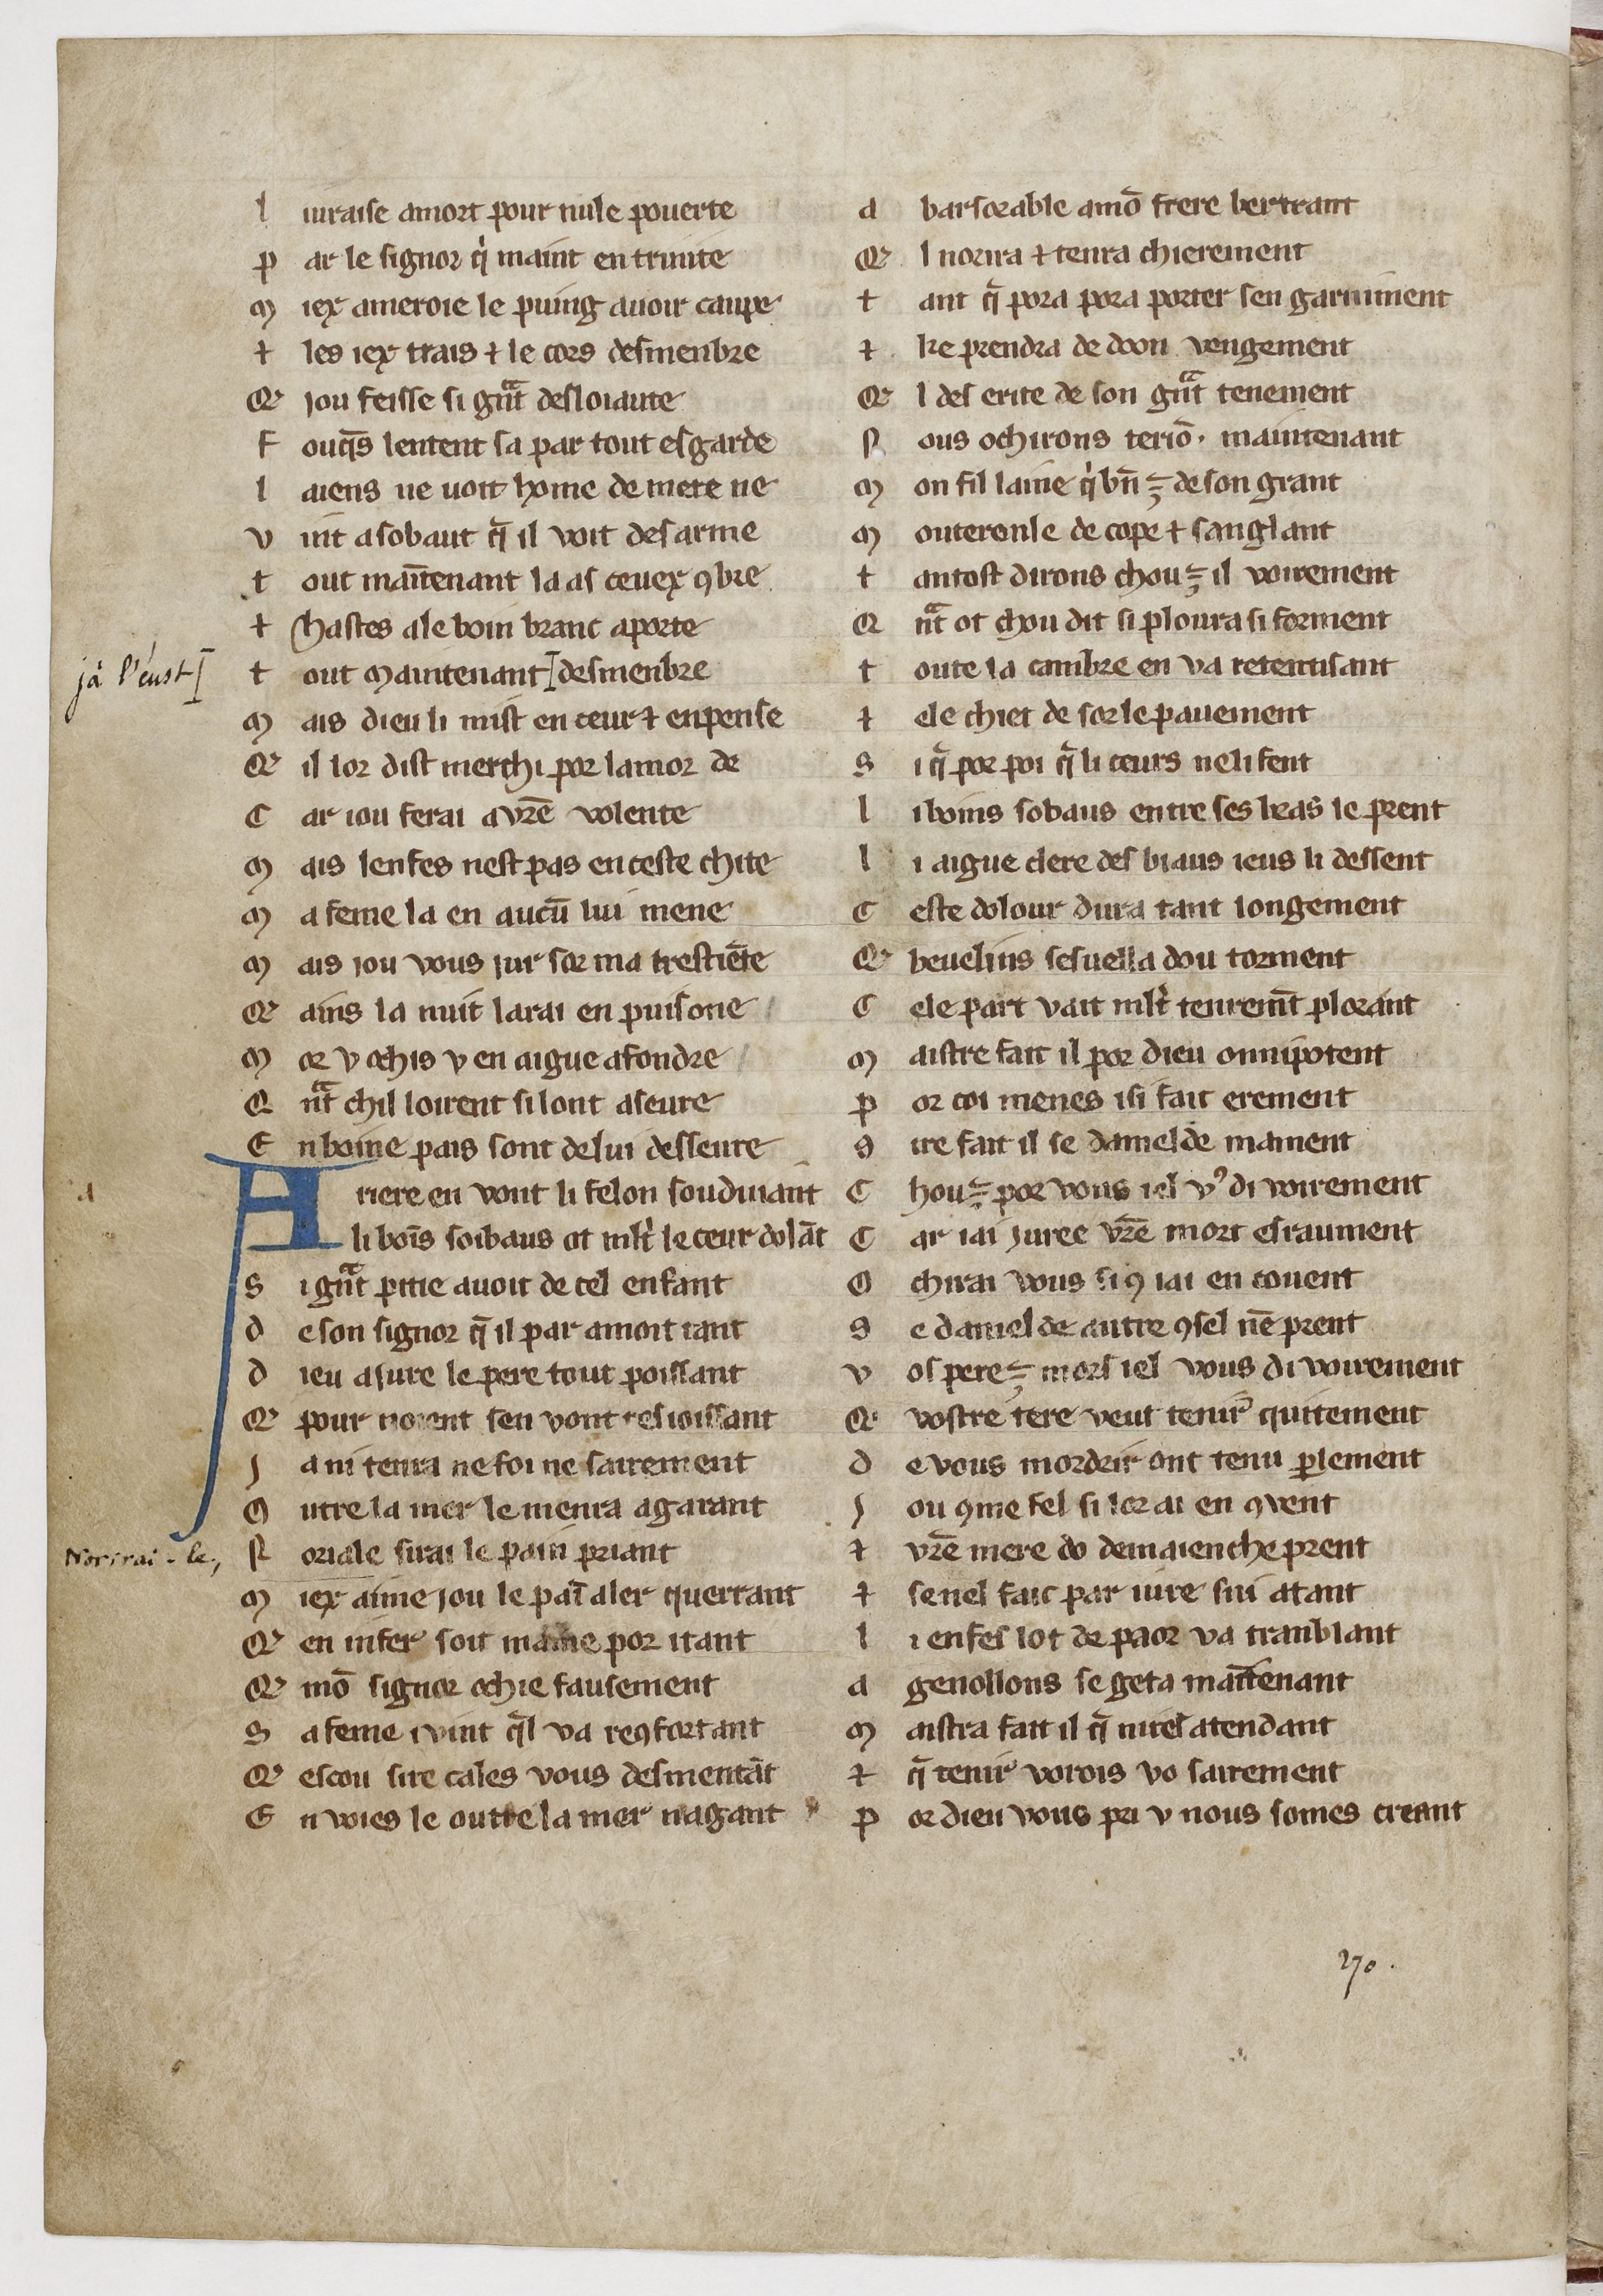 l iuraise amort pour nule pouerte
p ar le signor q̍ maint en trinite
m iex ameroie le puing auoir caupe
⁊ les iex trais ⁊ le cors desmenbre
Q̛ jou feisse si gᷓnt desloiaute
F ouq̄s lentent sa par tout esgarde
l aiens ne uoit home de mere ne
v int a sobaut q̄ il voit desarme
t out maītenant la as ceuex ꝯbre
⁊ hastes a le boin branc aporte
já l'éust t out maintenant desmenbre
m ais dieu li mist en ceur ⁊ enpense
Q̛ il lor dist merchi por lamor de
C ar iou ferai a vr̄e volente
m ais lenfes nest pas en ceste chite
m a feme la en aucū lui mene
m ais jou vous jur sor ma crestiēte
Q̛ ains la nuit larai enpuisone
m or v ochis v en aigue afondre
Q nᷓt chil loirent si lont aseure
E n boine pais sont de lui desseure
A riere en vont li felon souduiant
li boīs soibaus ot ml̍t le ceur dolāt
S i gᷓnt pitie auoit de cel enfant
d e son signor q̄ il par amoit tant
d ieu a jure le pere tout poissant
Q̛ pour noient sen vont resioissant
J a ni tenra ne foi ne sairement
O utre la mer le menra a garant
Norirai-le, N oriale sirai le pain priant
m iex aime jou le paī aler querrant
Q̛ en infer soit mame por itant
Q̛ mō signor ochie fausement
S a feme i vint q̄l va reꝯfortant
Q̛ escou sire cales vous desmentāt
E n voies le outre la mer nagant
a barsorable a mō frere bertrant
Q̛ l norira ⁊ tenra chierement
t ant q̄ pora pora porter sen garniment
⁊ kre prendra de doon vengement
Q̛ l des erite de son gᷓnt tenement
N ous ochirons teriō · maintenant
m on fil laine q̍ bn̄ ÷ de son grant
m outeronle decope ⁊ sanglant
t antost dirons chou ÷ il voirement
Q nᷓt ot chou dit si ploura si forment
t oute la cambre en va retentisant
⁊ ele chiet de sor le pauement
S i q̄ por poi q̄ li ceurs ne li fent
l i boins sobaus entre ses bras le prent
l i aigue clere des biaus ieus li dessent
C este dolour dura tant longement
Q̛ beuelins sesuella dou torment
C ele part vait ml̍t tenremēt plorant
m aistre fait il por dieu omnipotent
p or coi menes isi fait erement
S ire fait il se damelde mament
C hou ÷ por vous iel vꝰ di voirement
C ar iai juree vr̄e mort esraument
O chirai vous si ꝯ iai en couent
S e damelde autre ꝯsel nē prent
v os pere ÷ mors iel vous di voirement
Q̛ vostre tere veut tenir quitement
d e vous mordrir ont tenu p̱lement
J ou ꝯme fel si lor ai en ꝯvent
⁊ vr̄e mere do demaienche prent
⁊ se nel faic par iure sui atant
l i enfes lot de paor va tranblant
a genollons se geta maītenant
m aistra fait il q̄ nires atendant
⁊ q̄ tenir vorois vo sairement
p or dieu vous pri v nous somes creant
270.